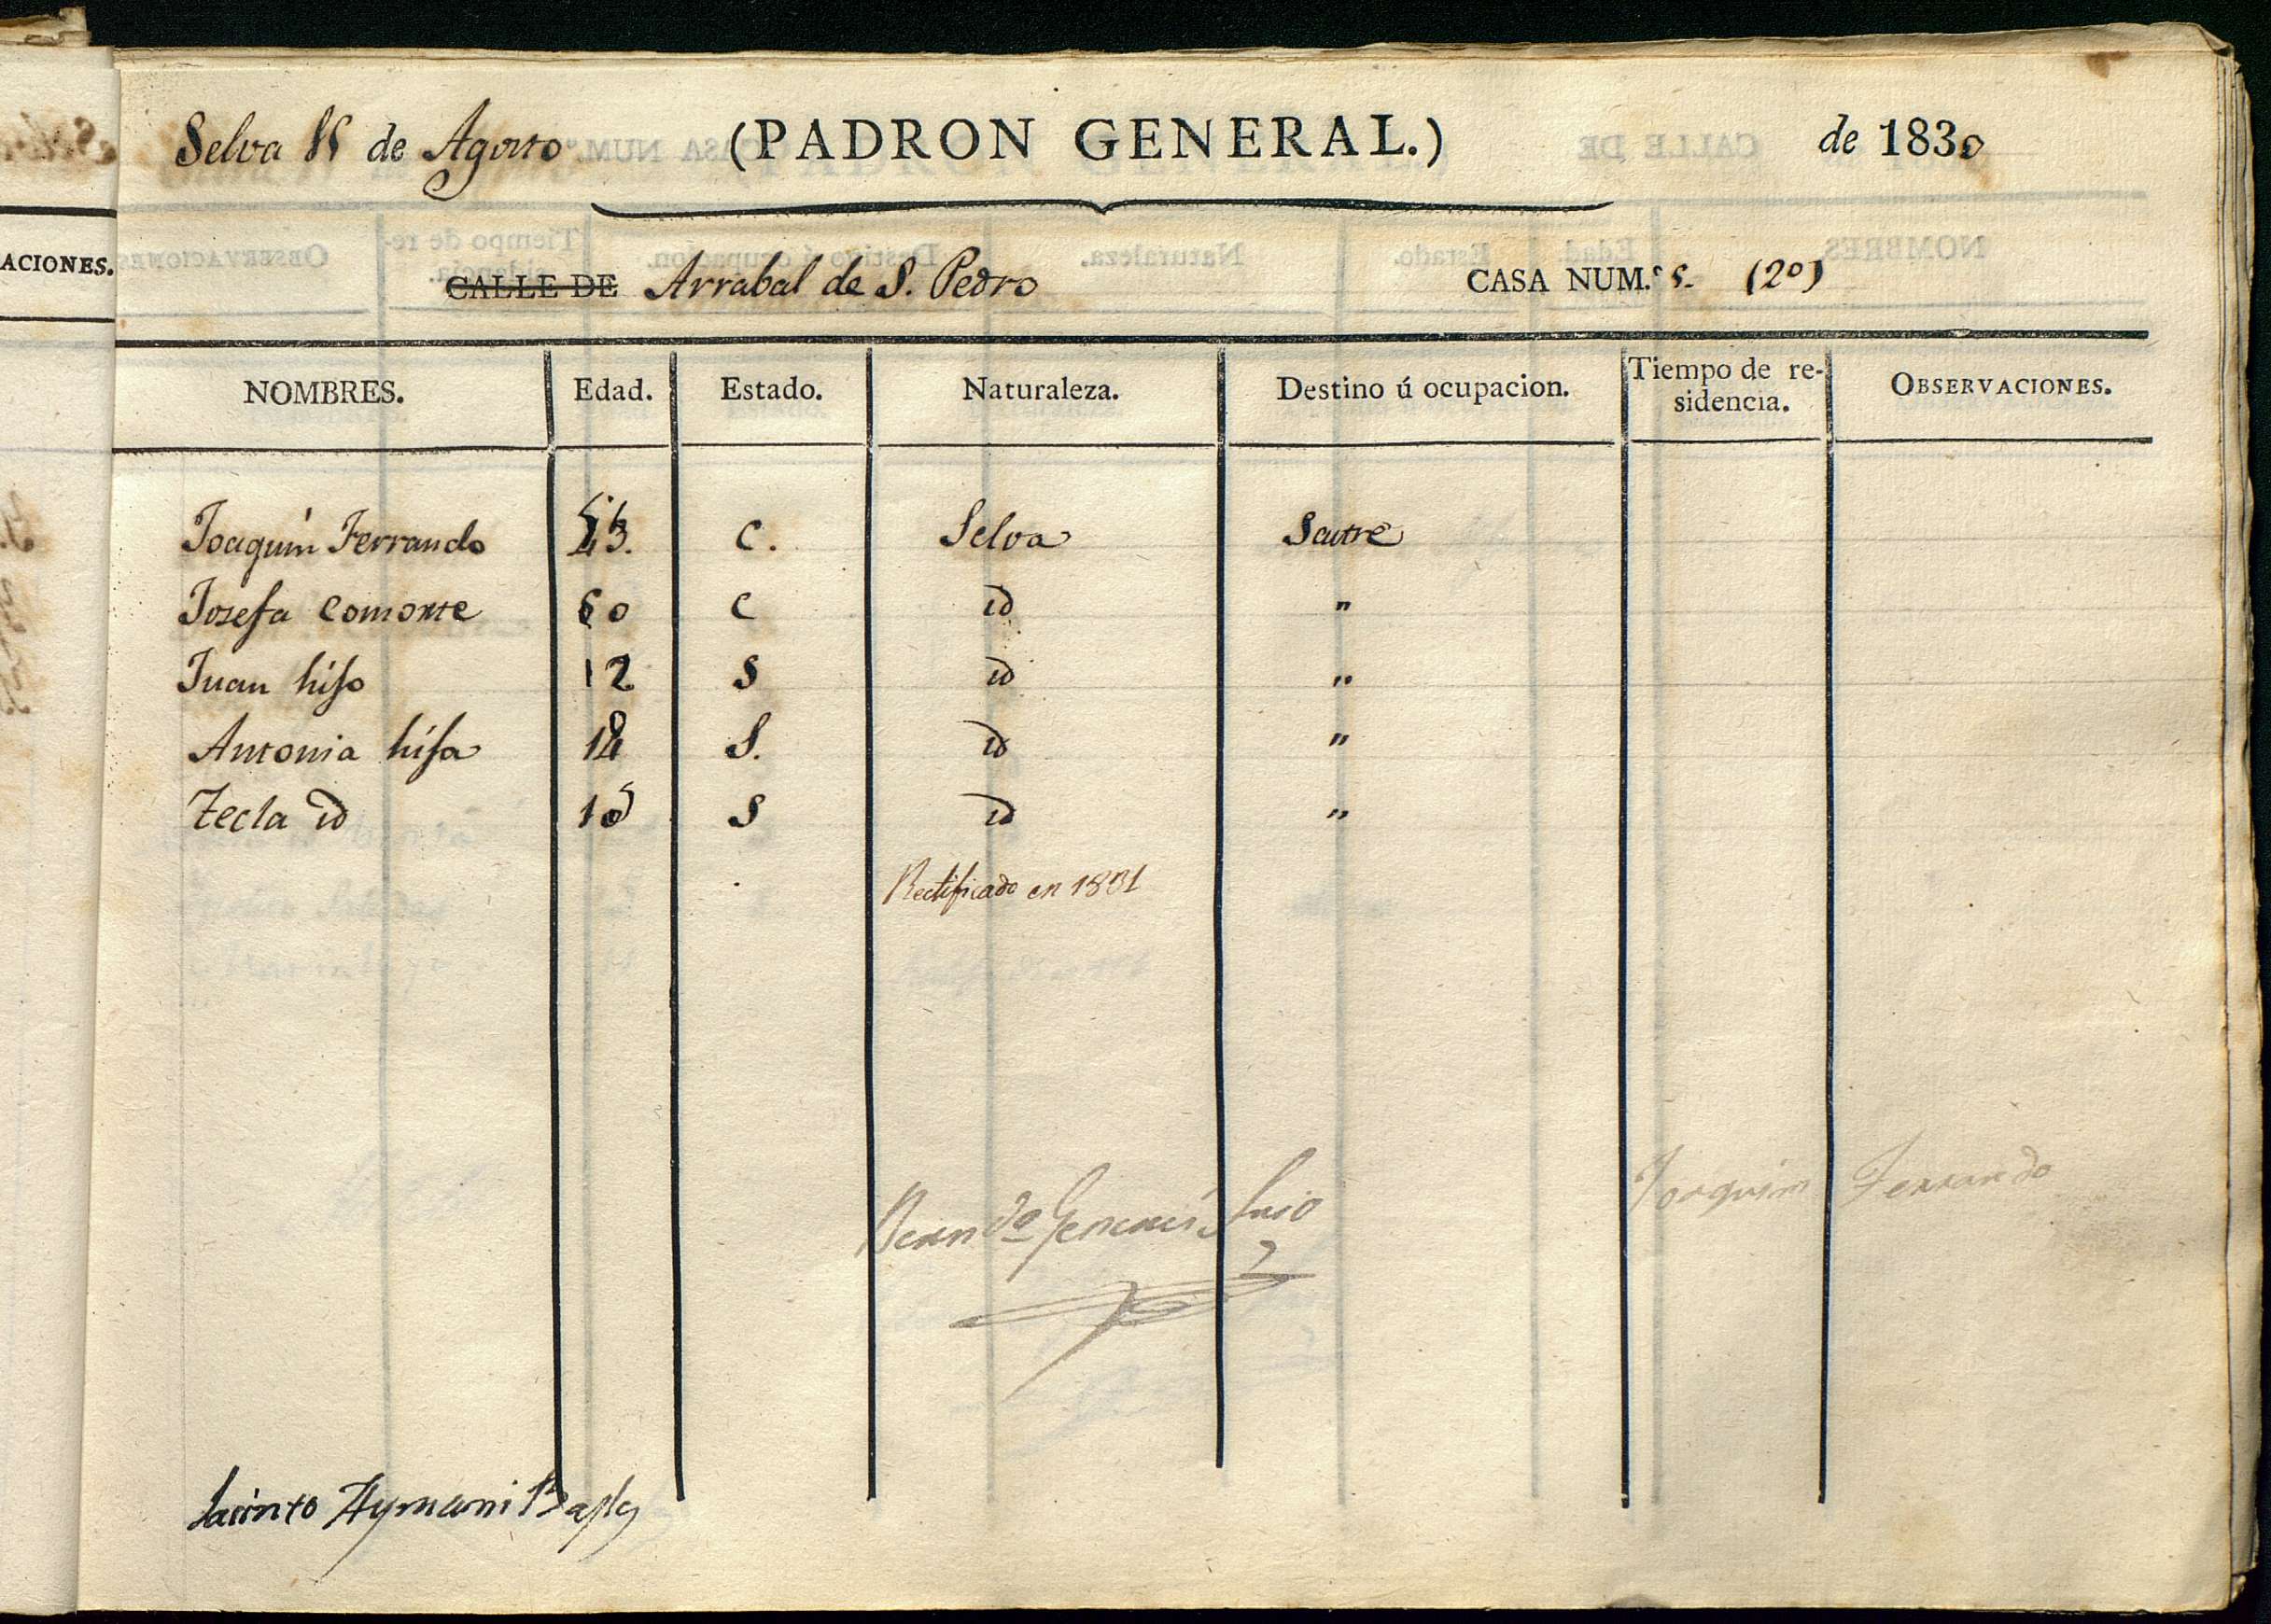 ACIONES.
Selva de Agosto (PADRON GENERAL.) de 1830
CALLE DE Arrabal de S. Pedro CASA NUM.º 5. (2º)
NOMBRES. Edad. Estado. Naturaleza. Destino ú ocupacion. Tiempo de re-
sidencia. OBSERVACIONES.
Joaquin Ferrando C. Selva Sastre
Josefa Comonte 50 C id "
Juan hijo 12 S id "
Antonia hija S. id "
Tecla id S id "
Rectificado en 1831
Joaquim Ferrando
Jacinto Aymami